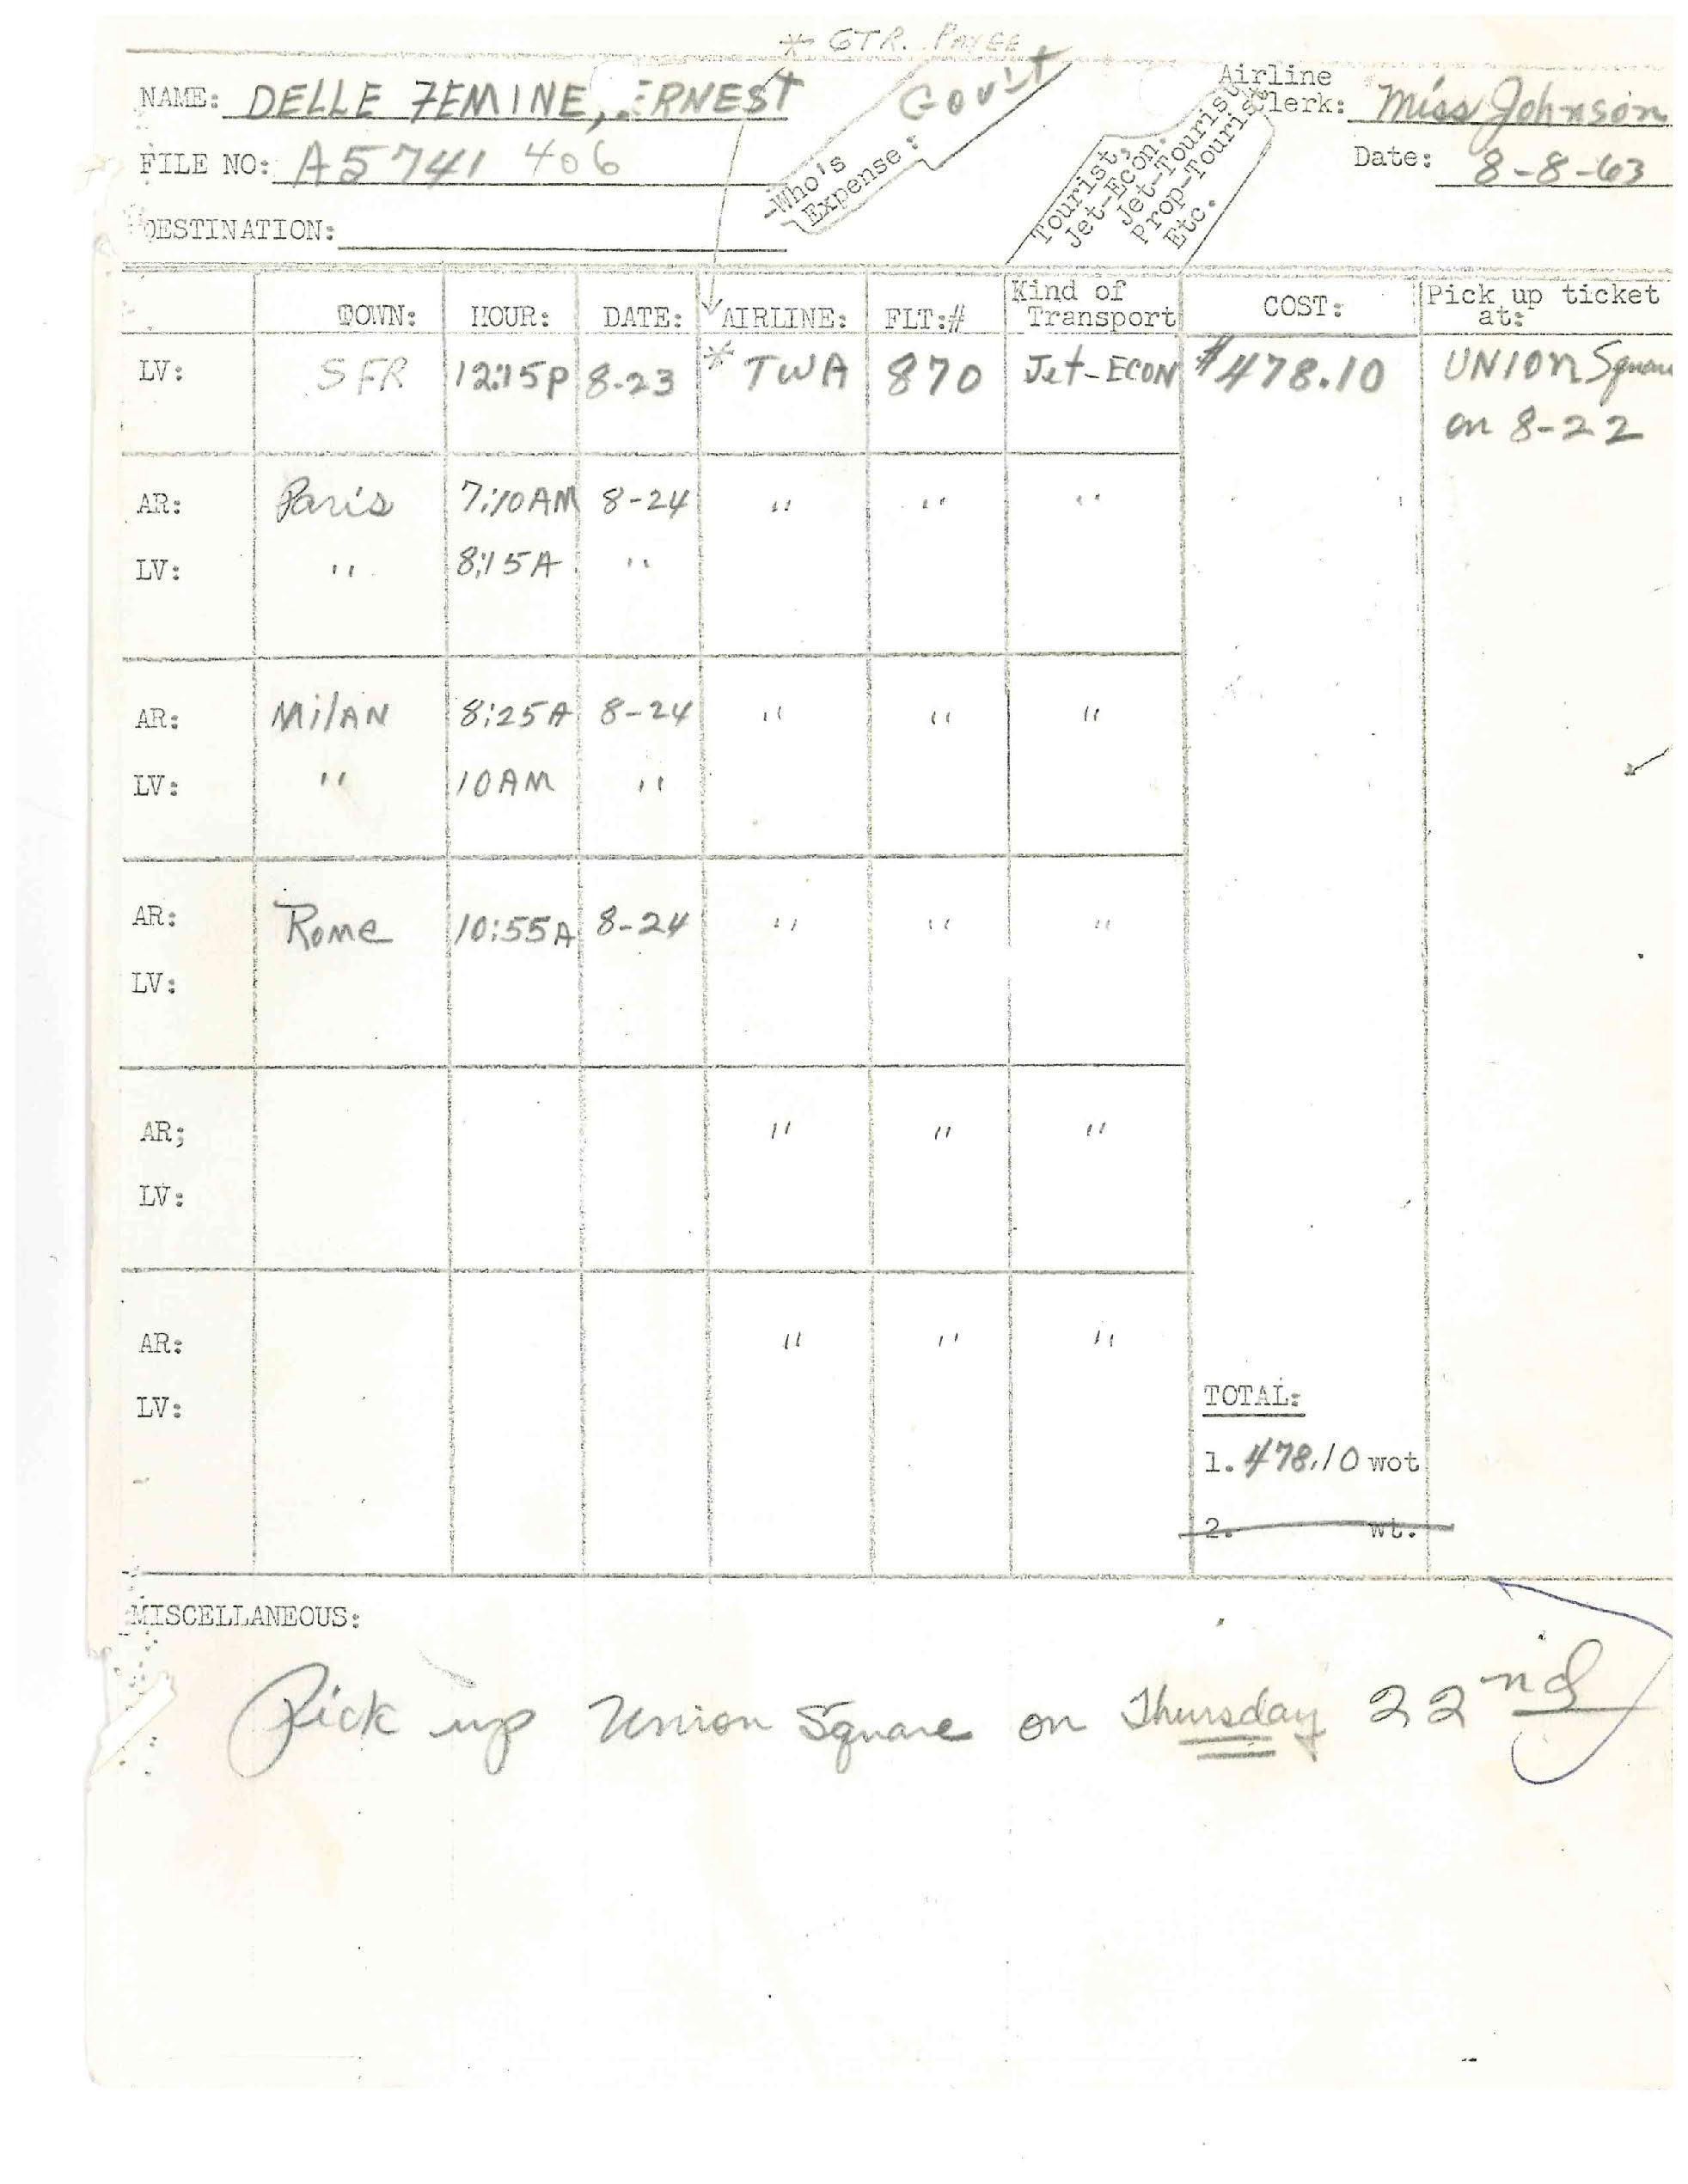 * GTR. PAYEE
NAME: DELLE FEMINE, ERNEST
Who's Expense: GOV'T
Tourist, Jet-Econ. Jet-Tourist Prop-Tourist Etc.
Airline Clerk: Miss Johnson
FILE NO: A5 741 406
Date: 8-8-63
DESTINATION:
TOWN: HOUR: DATE: AIRLINE: FLT:# Kind of Transport COST: Pick up ticket at:
LV: SFR 12:15P 8-23 * TWA 870 Jet-ECON $478.10 UNION Square
on 8-22
AR: Paris 7:10AM 8-24 " " "
LV: " 8:15A "
AR: MilAN 8:25A 8-24 " " "
LV: " 10AM "
AR: Rome 10:55A 8-24 " " "
LV:
AR; " " "
LV:
AR: " " "
LV:
TOTAL:
1. 478.10 wot
2. wt.
MISCELLANEOUS:
Pick up Union Square on Thursday 22nd